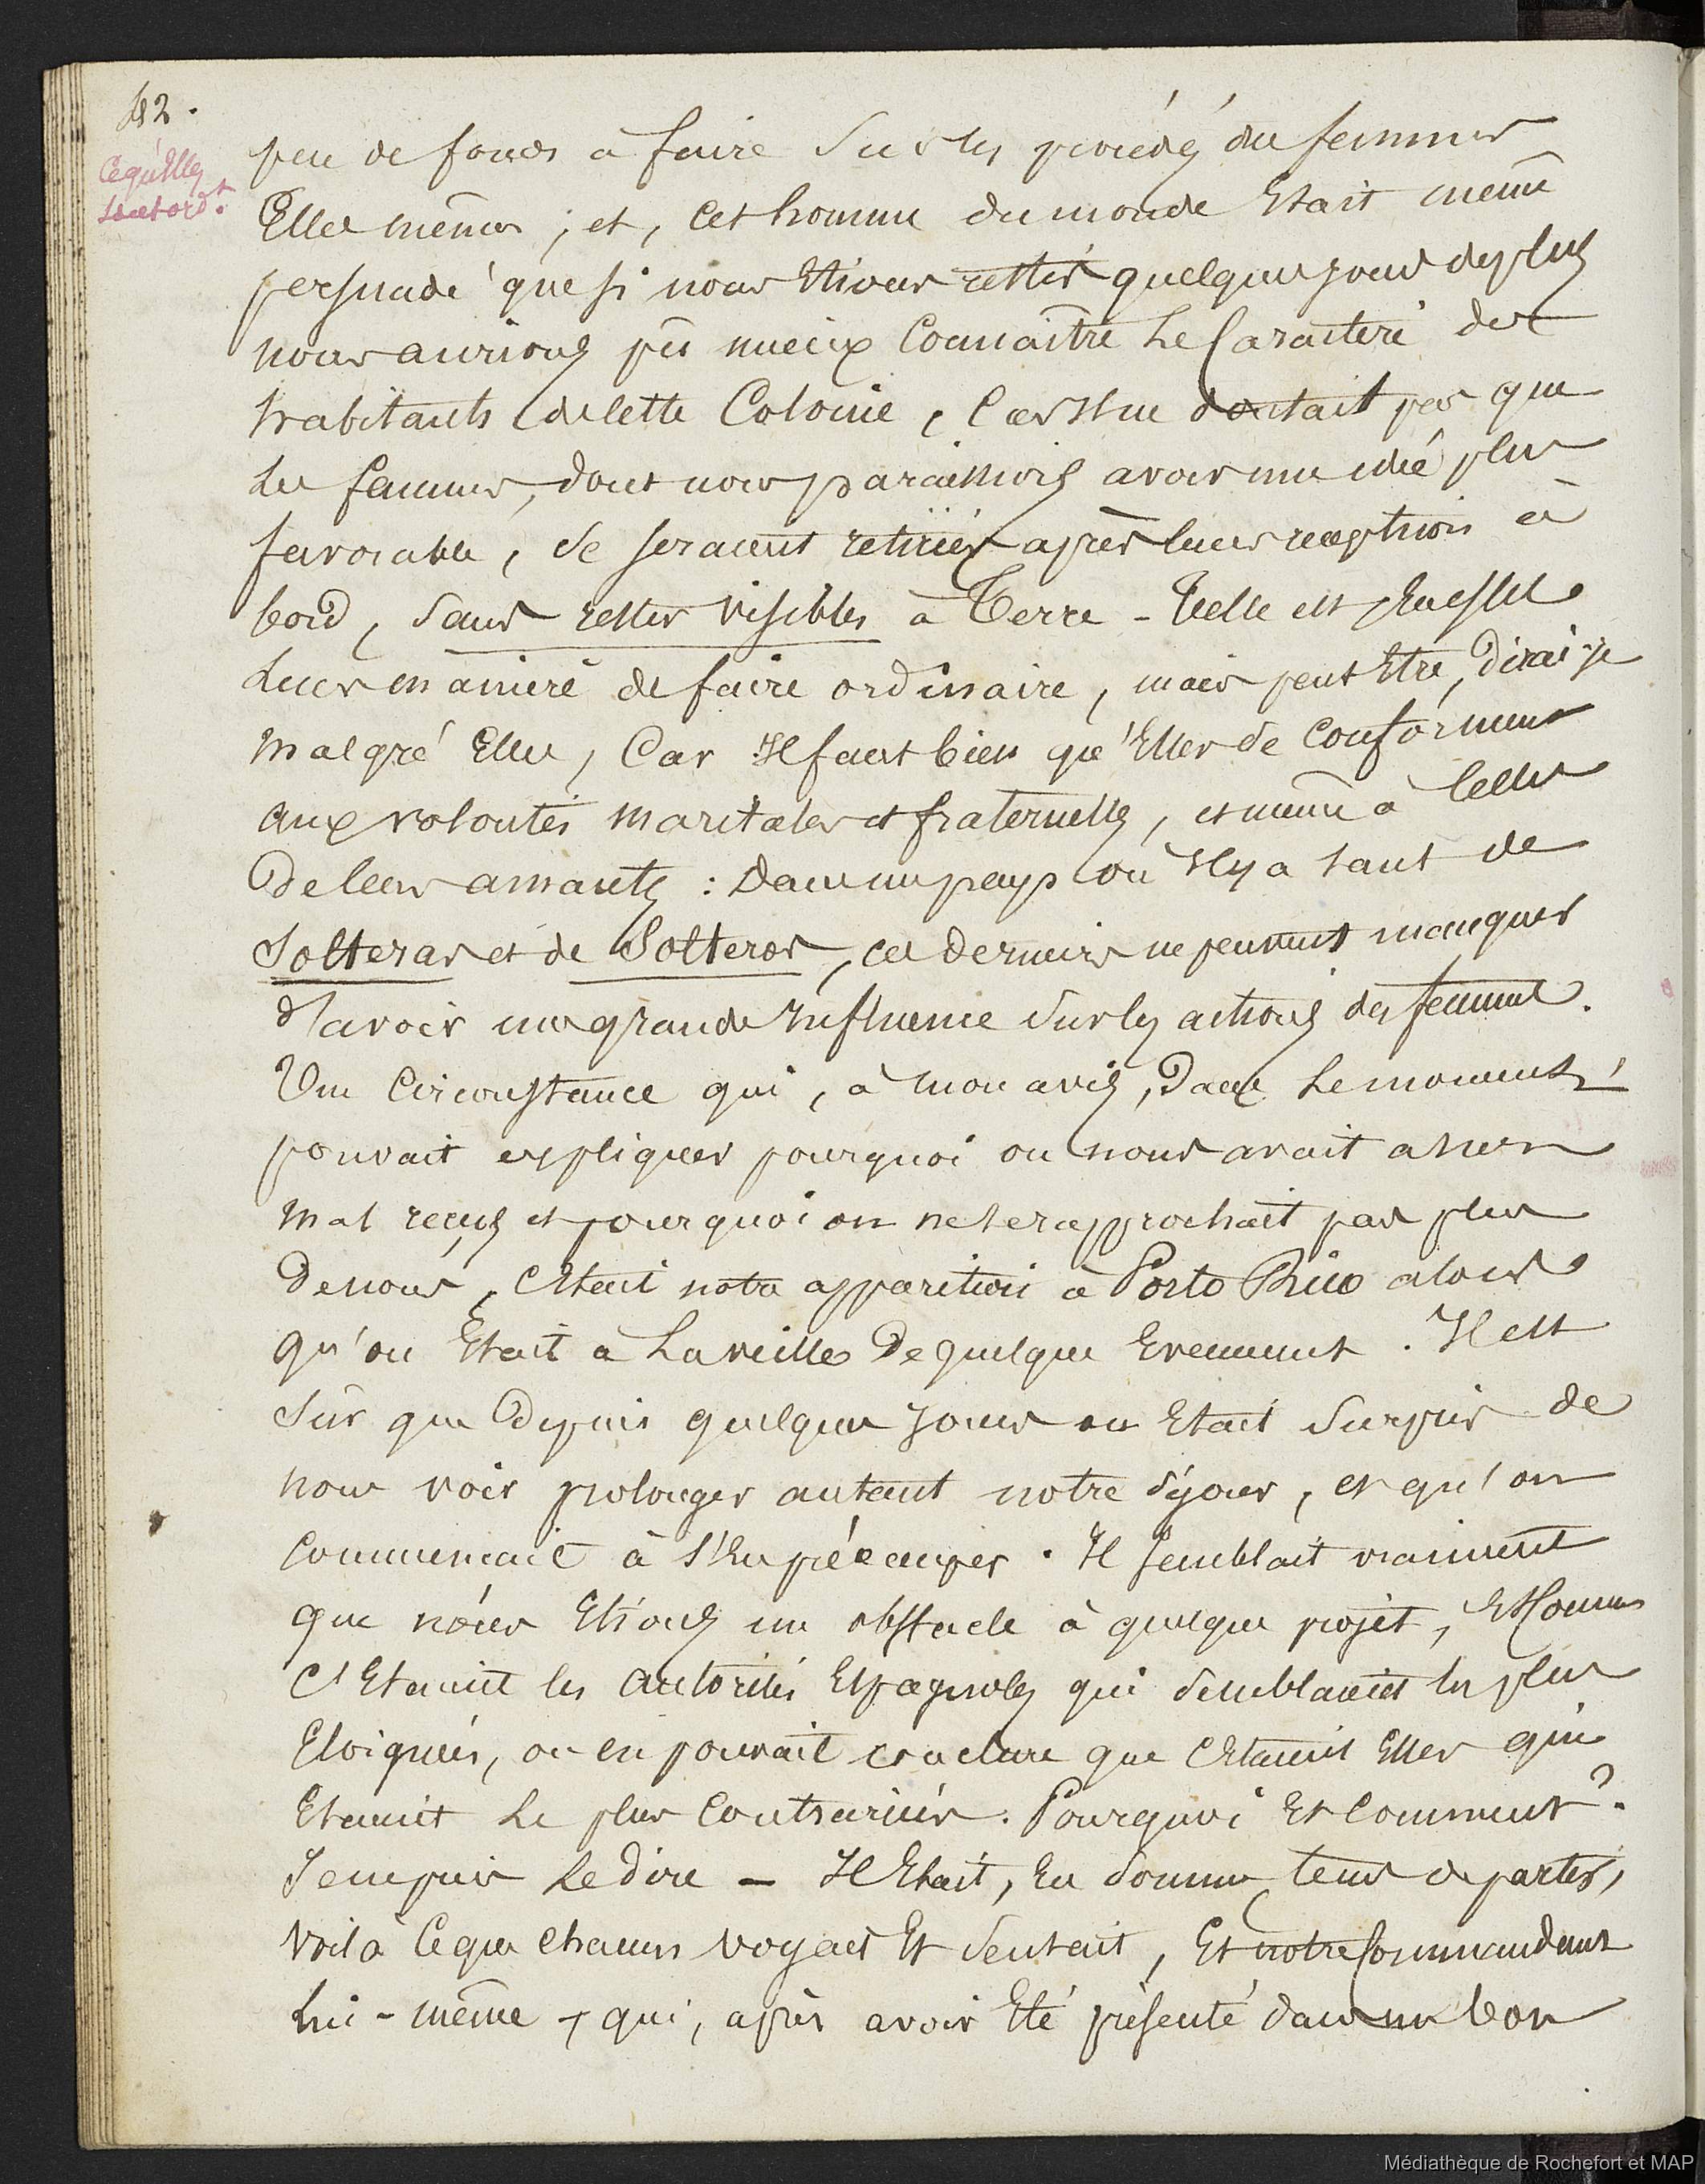 42.
Ce qu'Elles
sont ord.t
peu de fonds à faire sur les procédés des femmes
Elles mêmes ; et, cet homme du monde Etait même
persuadé que si nous Etions restés quelques jours de plus
nous aurions pû mieux Connaître Le Caractere des
habitants de cette Colonie, Car Il ne doutait pas que
Les femmes, dont nous paraissions avoir une idée plus
favorable, se seraient retirées après leur reception à
bord, sans rester visibles à Terre - Telle est En effet
Leur maniere de faire ordinaire, mais peut Etre, dirai-je
malgré Elles, Car Il faut bien qu'Elles se conforment
aux volontés maritales et fraternelles, et même à Celles
De leurs amants : Dans un pays où Il y a tant de
Solteras et de Solteros, ces derniers ne peuvent manquer
d'avoir une grande Influence sur les actions des femmes.
Une Circonstance qui, à mon avis, Dans Le moment,
pouvait expliquer pourquoi on nous avait assez
mal reçus et pourquoi on ne se rapprochait pas plus
De nous, C'Etait notre apparition à Porto Rico alors
qu'on Etait à La veille De quelque Evenement. Il est
sûr que Depuis quelques Jours on Etait surpris de
nous voir prolonger autant notre séjour, et qu'on
commencait à s'En préoccuper. Il semblait vraiment
que nous Etions un obstacle à quelque projet, Et Comme
C'Etaient les autorités Espagnoles qui semblaient les plus
Eloignées, on en pouvait conclure que C'Etaient Elles qui
Etaient Le plus Contrariées. Pourquoi Et Comment ?
Je ne puis Le dire - Il Etait, En somme, tems de partir,
Voilà Ce que chacun voyait Et sentait, Et notre Commandant
Lui-même, qui, après avoir Eté présenté dans un bon
Médiathèque de Rochefort et MAP